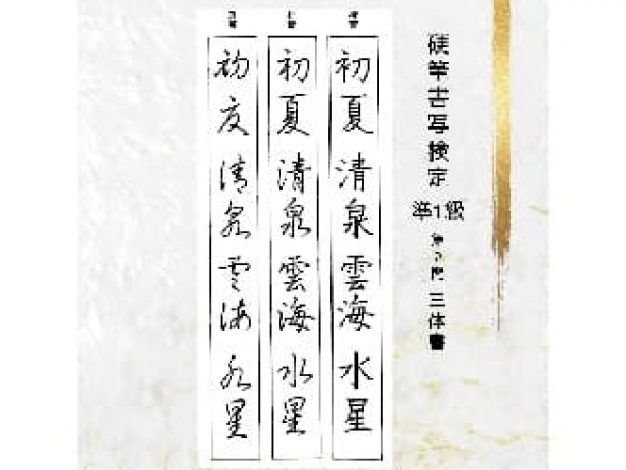 硬筆書写検定
準1級
三体書
楷書
行書
草書
初夏 清泉 雲海 水星
初夏 清泉 雲海 水星
初夏 清泉 雲海 水星